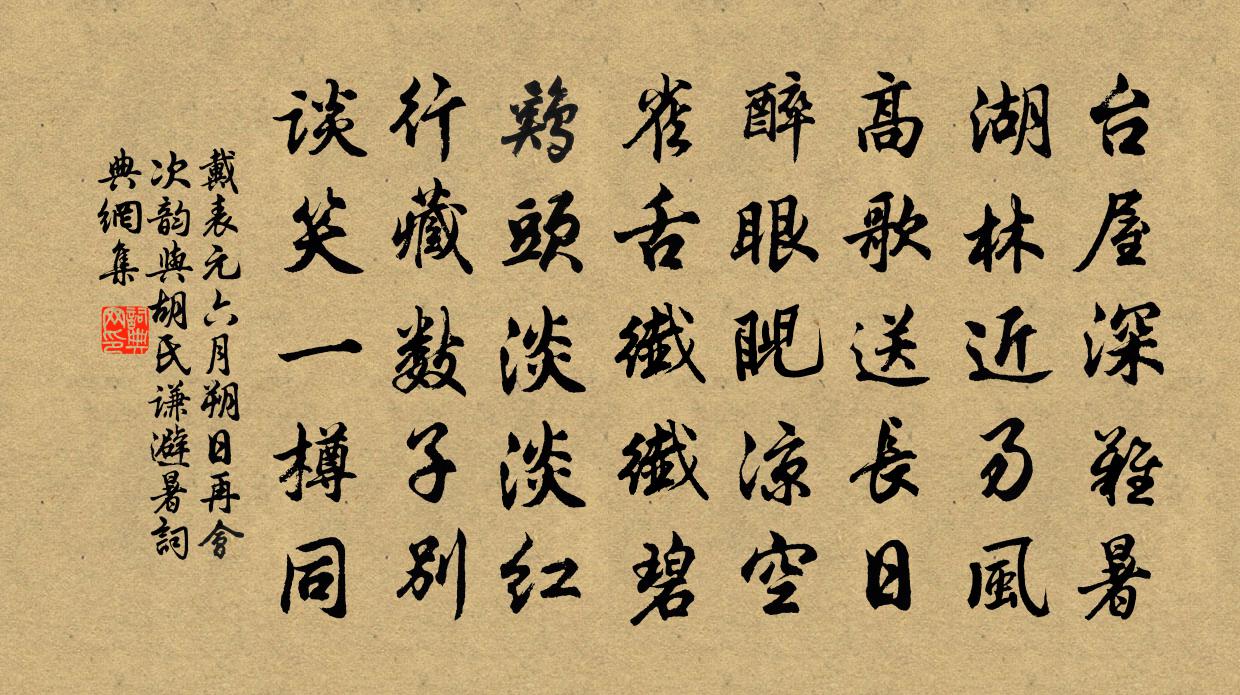 台屋深難暑
湖林近易風
高歌送長日
醉眼睨凉空
雀舌纖纖碧
鷄頭淡淡红
行藏數子別
談笑一樽同
戴表元六月朔日再會
次韵與胡氏谦避暑詞
典網集
詞典网印